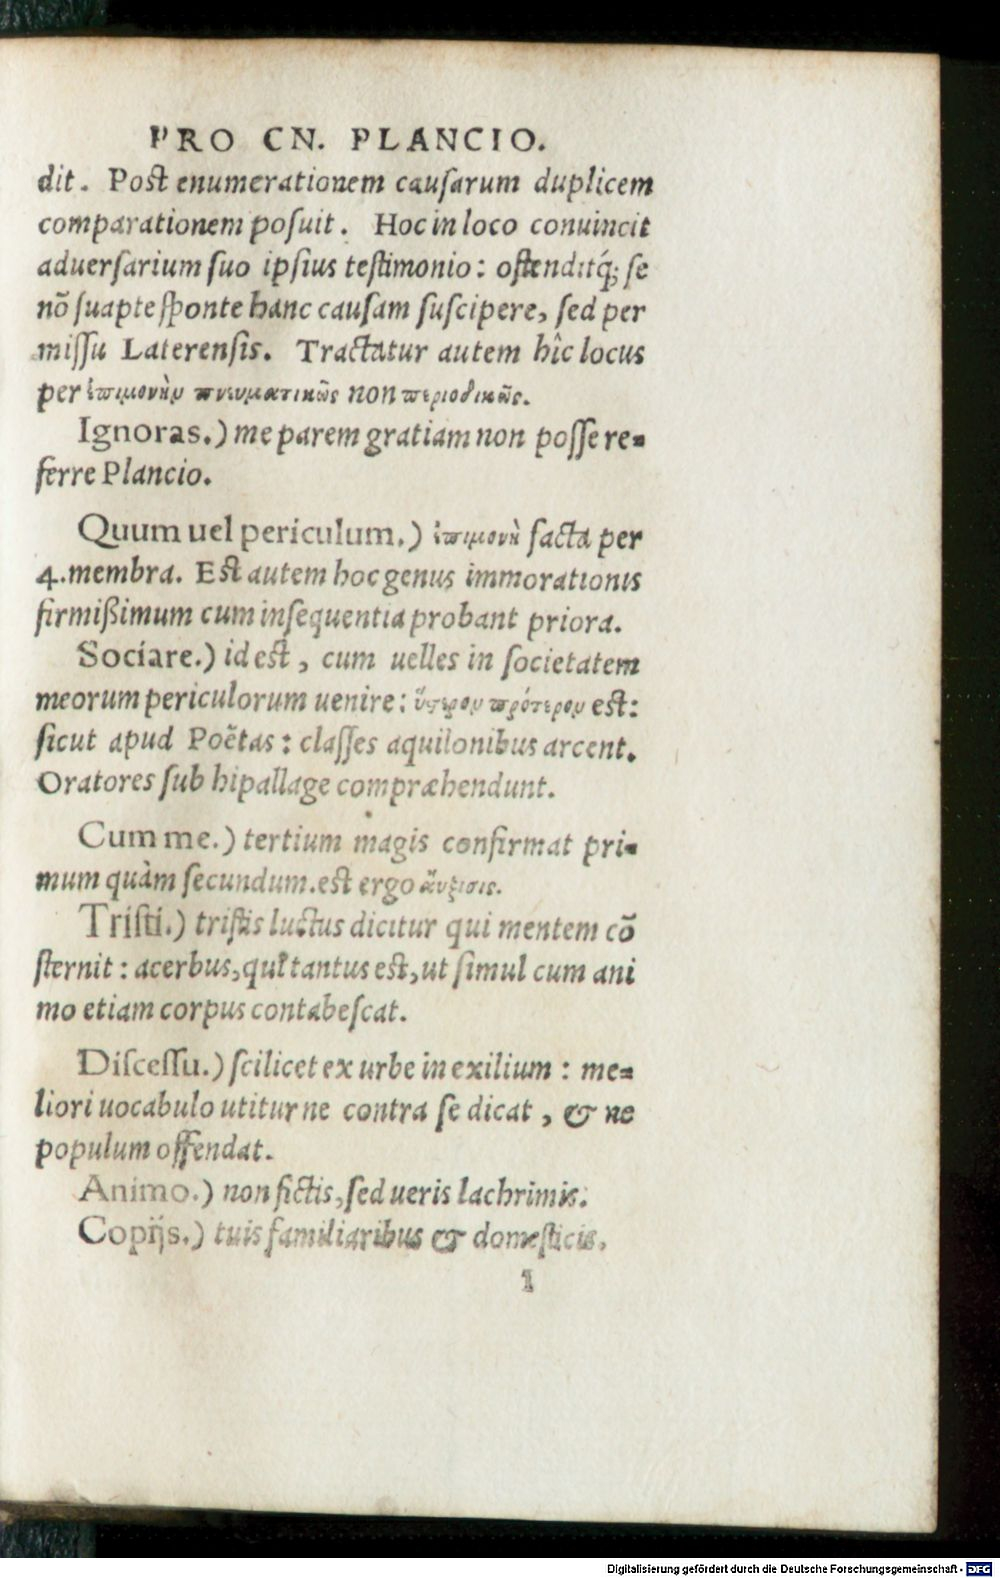 PRO CN. PLANCIO.
dit. Post enumerationem causarum duplicem
comparationem posuit. Hoc in loco conuincit
aduersarium suo ipsius testimonio: ostenditq́; se
nō suapte sponte hanc causam suscipere, sed per
missu Laterensis. Tractatur autem hîc locus
per ἐπιμονὴν πνευματικῶς non περιοδικῶς.
Ignoras.) me parem gratiam non posse re-
ferre Plancio.
Quum uel periculum.) ἐπιμονὴ facta per
4. membra. Est autem hoc genus immorationis
firmißimum cum insequentia probant priora.
Sociare.) id est, cum uelles in societatem
meorum periculorum uenire: ὕστερον πρότερον est:
sicut apud Poëtas: classes aquilonibus arcent.
Oratores sub hipallage compræhendunt.
Cum me.) tertium magis confirmat pri-
mum quàm secundum. est ergo ἄυξισις.
Tristi.) tristis luctus dicitur qui mentem cō
sternit: acerbus, qui tantus est, ut simul cum ani
mo etiam corpus contabescat.
Discessu.) scilicet ex urbe in exilium: me-
liori uocabulo utitur ne contra se dicat, & ne
populum offendat.
Animo.) non fictis, sed ueris lachrimis.
Copijs.) tuis familiaribus & domesticis.
l
Digitalisierung gefördert durch die Deutsche Forschungsgemeinschaft - DFG